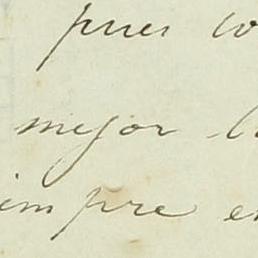 pues co
mejor l
impre e